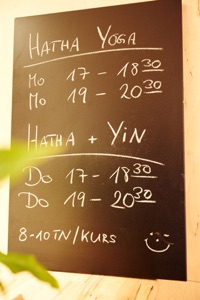 HATHA YOGA
Mo 17 – 18 30
Mo 19 – 20 30
HATHA + YIN
Do 17 – 18 30
Do 19 – 20 30
8-10 TN/KURS